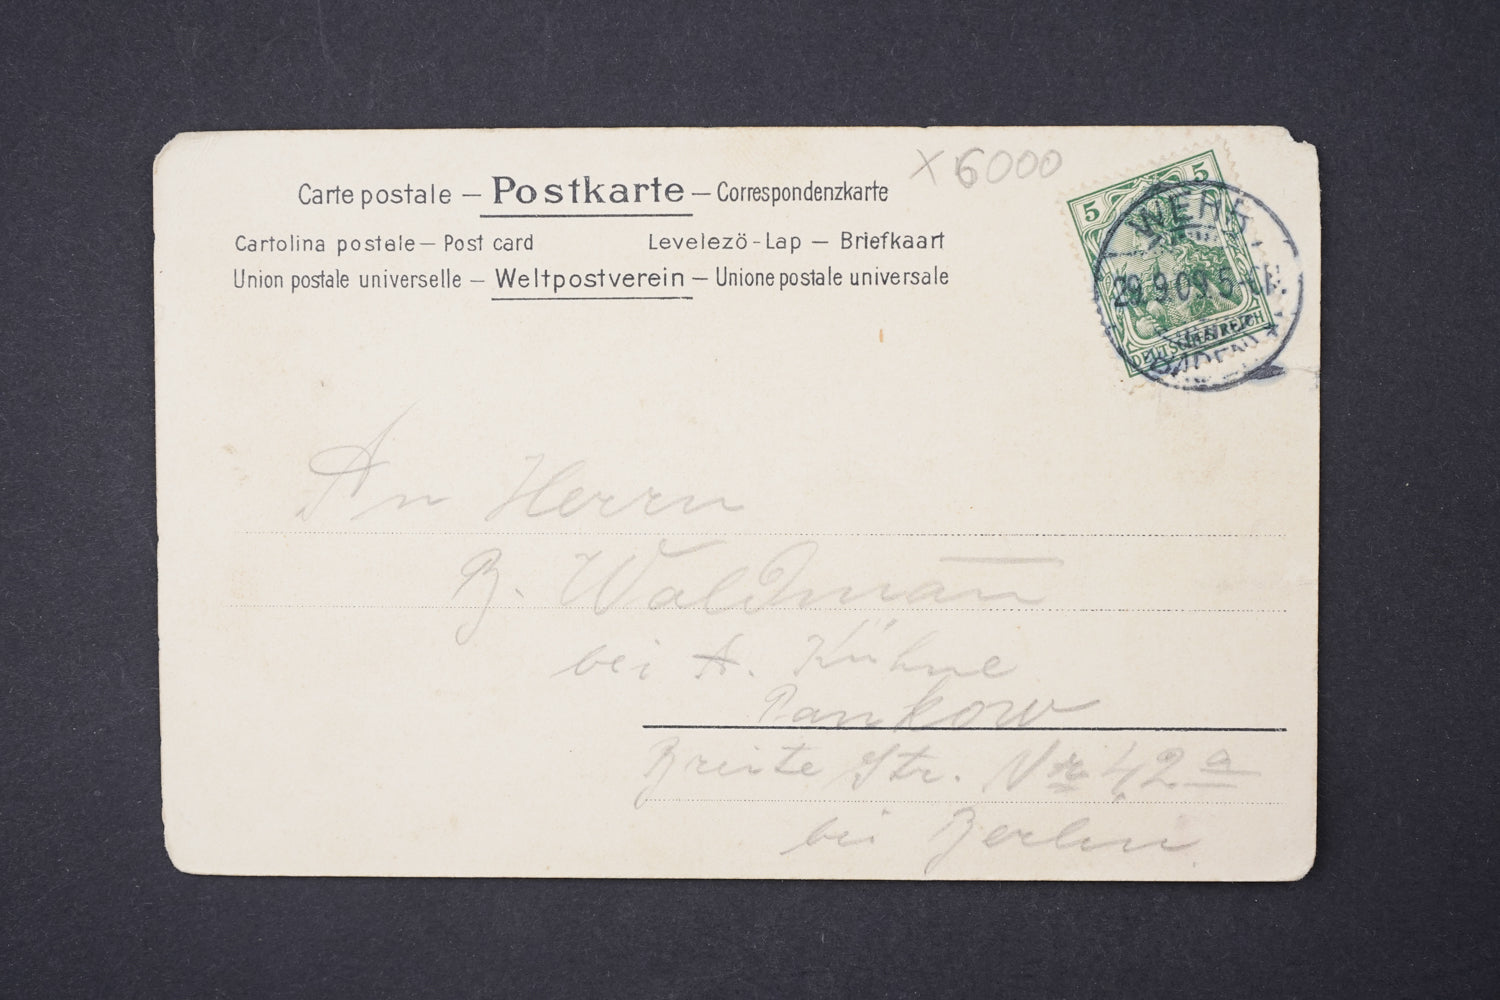 × 6000
Carte postale – Postkarte – Correspondenzkarte
Cartolina postale – Post card Levelezö-Lap – Briefkaart
Union postale universelle – Weltpostverein – Unione postale universale
5 5
29.9.09.5-6N.
DEUTSCHES REICH
An Herrn
B. Waldman̅
bei A. Kühne
Pankow
Breite Str. Nr 42 a
bei Berlin.